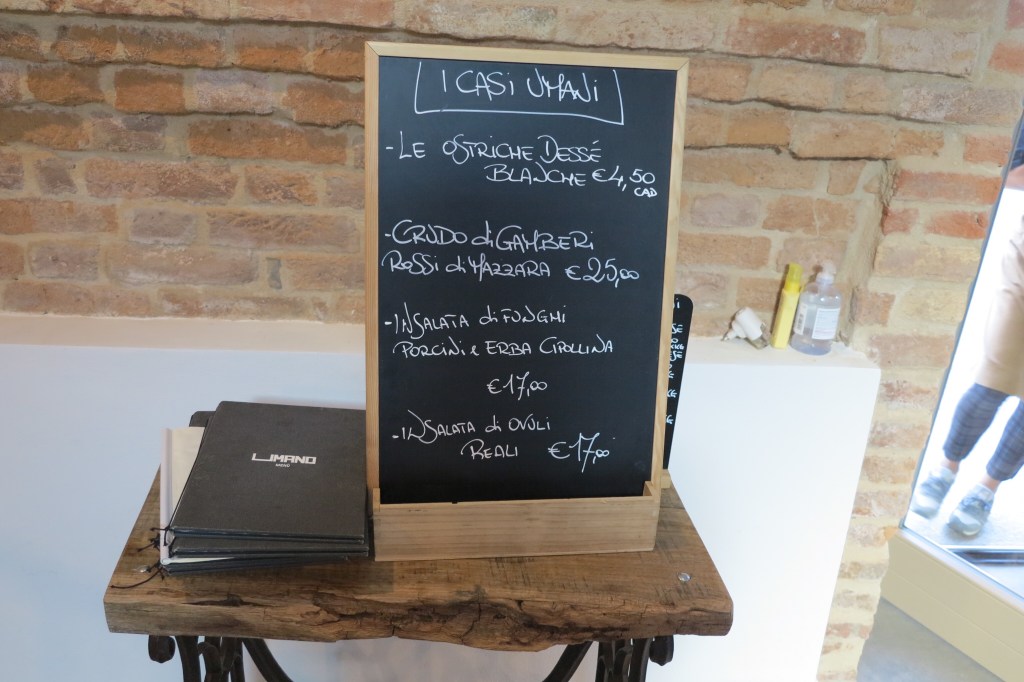 I CASI UMANI
-LE OSTRICHE DESSÉ
BLANCHE €4,50
CAD
-CRUDO di GAMBERI
ROSSI di MAZZARA €25,00
-INSALATA di FUNGHI
PORCINI e ERBA CIPOLLINA
€17,00
-INSALATA di OVULI
REALI €17,00
UMANO